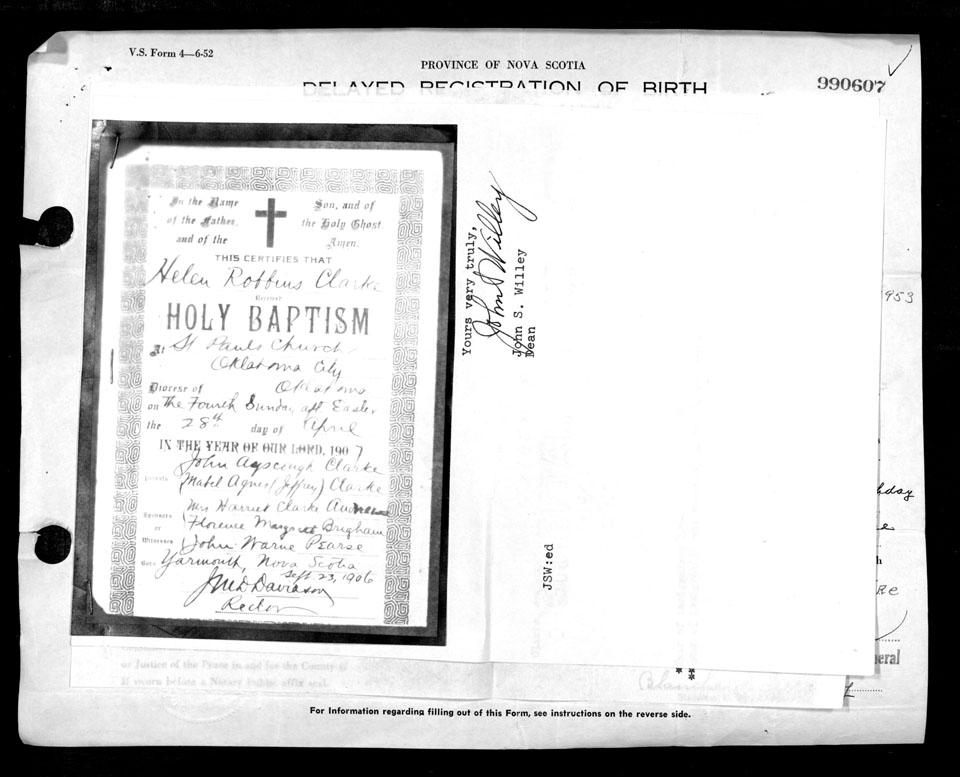 V.S. Form 4—6-52
PROVINCE OF NOVA SCOTIA
DELAYED REGISTRATION OF BIRTH
990607
In the Name
of the Father,
and of the
Son, and of
the Holy Ghost.
Amen.
THIS CERTIFIES THAT
Helen Robbins Clarke
Received
HOLY BAPTISM
At St Pauls Church
Oklahoma City
Diocese of Oklahoma
on The Fourth Sunday aft Easter
the 28th day of April
IN THE YEAR OF OUR LORD, 1907
John Clarke
(Mabel Agnes (Jeffrey) Clarke
Mrs Harriet Clarke
Sponsors
or
Witnesses
Florence Margaret Brigham
John Warne Pearse
Born Yarmouth, Nova Scotia
Sept. 23, 1906
Davidson
Rector
Yours very truly,
John S Willey
John S. Willey
Dean
JSW:ed
953
hday
e
h
Re
eral
or Justice of the Peace in and for the County of
If sworn before a Notary Public affix seal.
**
**
For Information regarding filling out of this Form, see instructions on the reverse side.